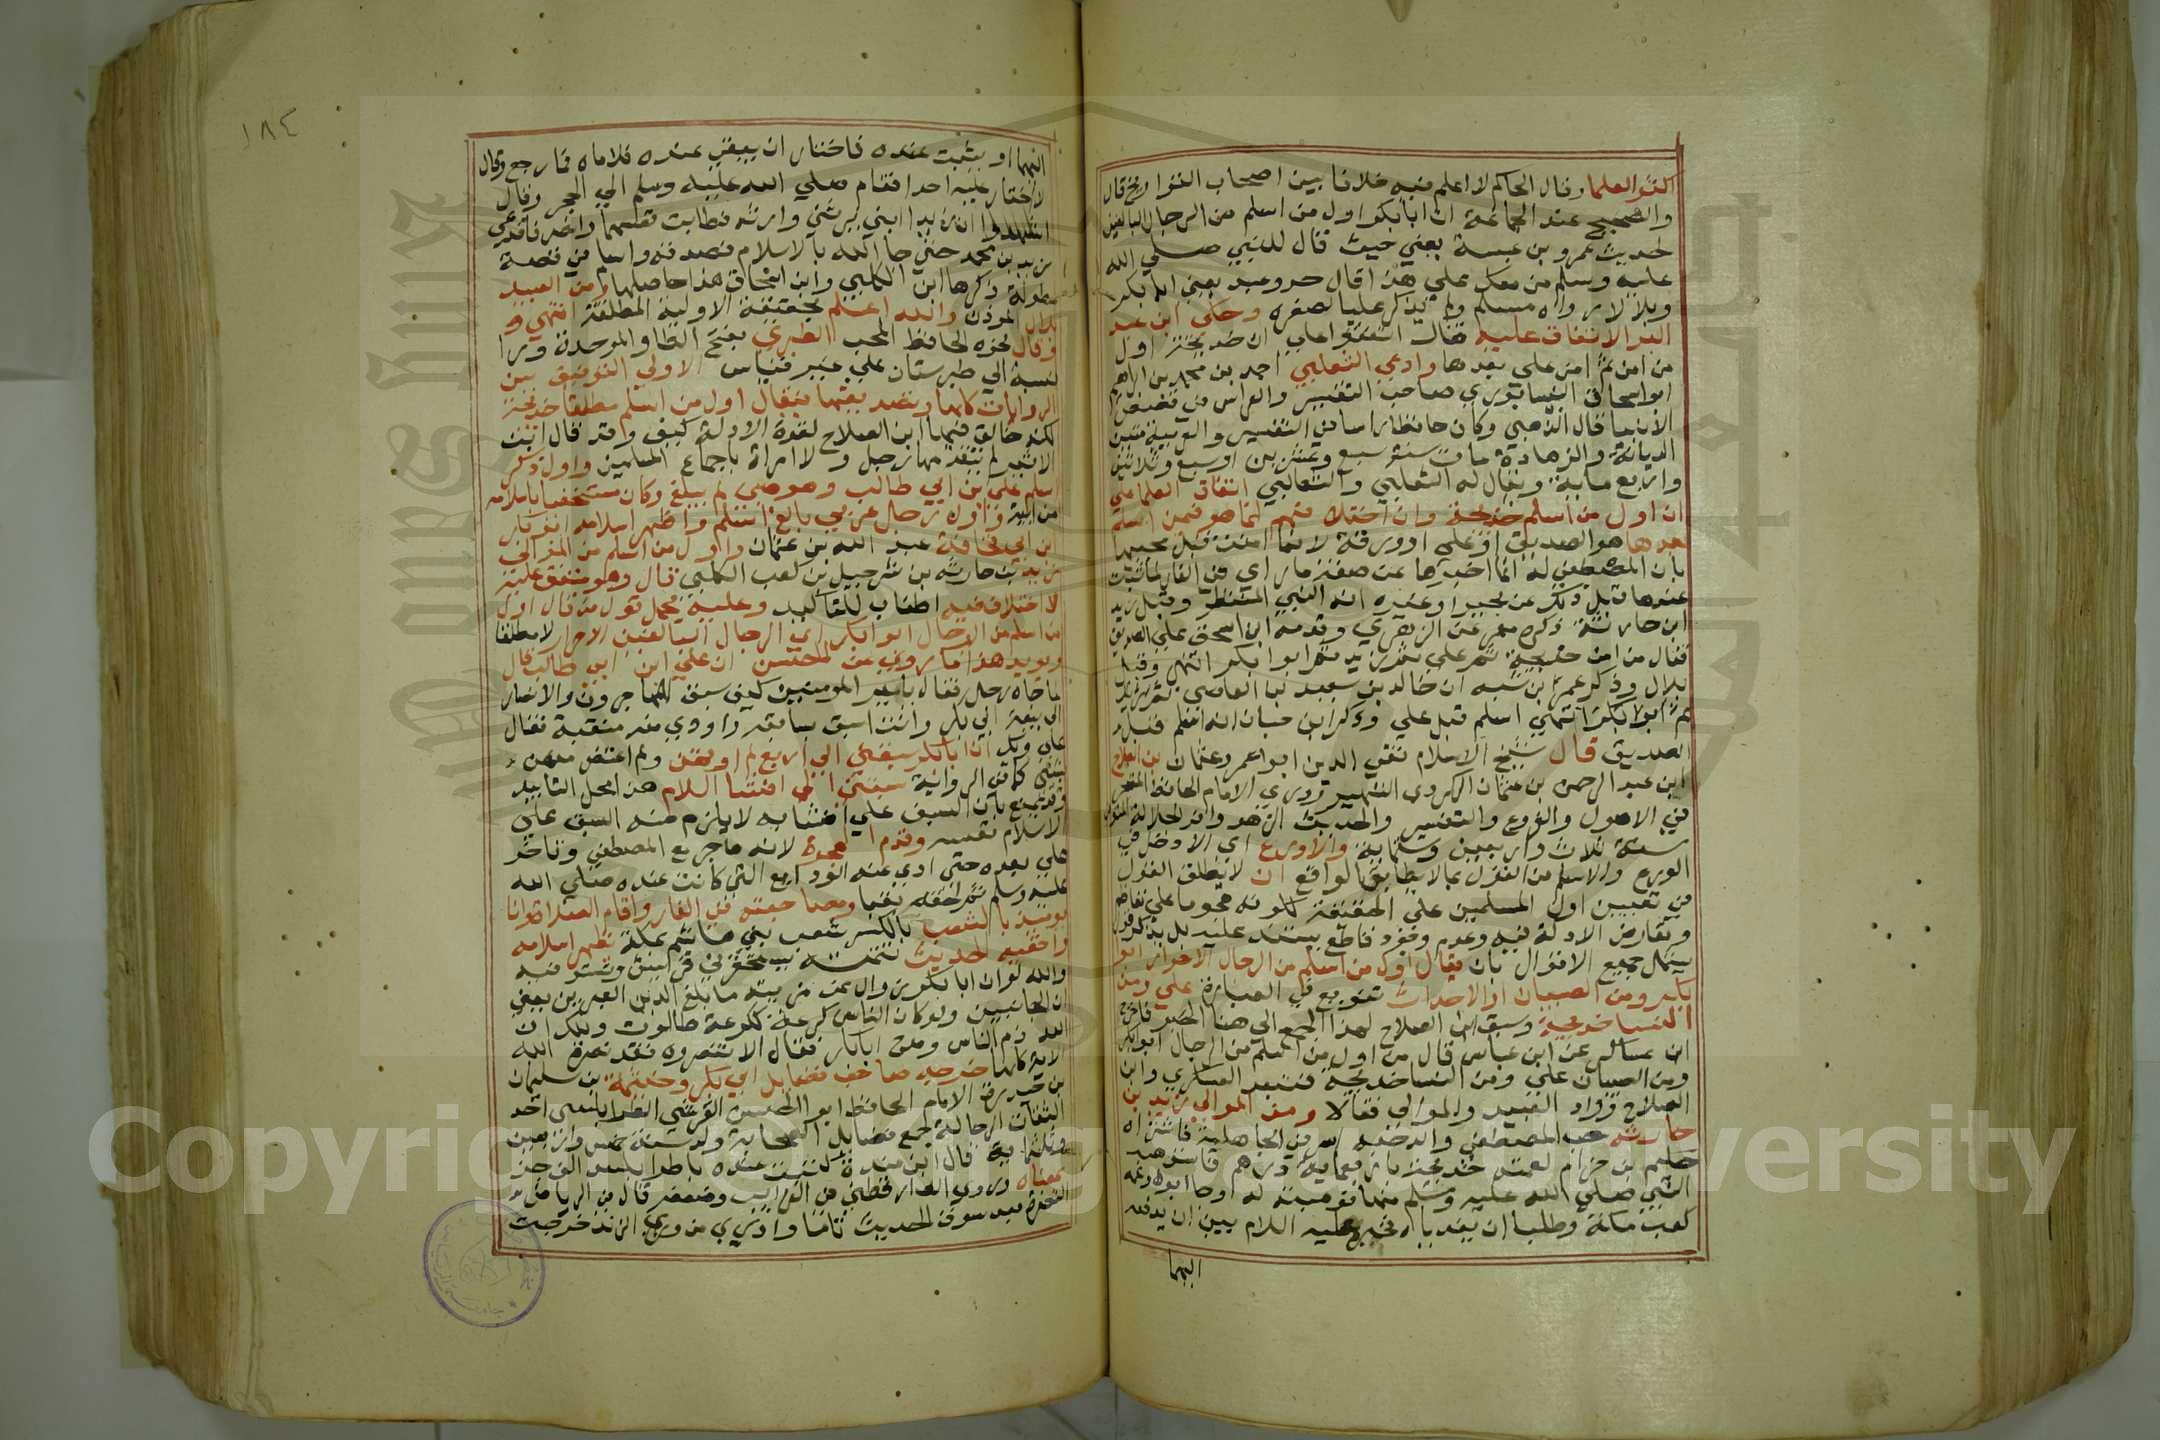 اكثر العلما وقال الحاكم لا اعلم فيه خلافا بين اصحاب التواريخ قال
والصحيح عند الجماعة ان ابا بكر اول من اسلم من الرجال البالغين
لحديث عمرو بن عبسة يعني حيث قال للنبي صلي الله
عليه وسلم من معك علي هذا قال حر وعبد يعني ابا بكر
وبلالا رواه مسلم ولم يذكر عليا لصغره وحكي ابن عبد
البر الاتفاق عليه فقال اتفقوا علي ان خديجة اول
من امن ثم امن علي بعدها وادعي الثعلبي احمد بن محمد بن ابراهيم
ابو اسحاق النيسابوري صاحب التفسير والعرايس في قصص
الانبيا قال الذهبي وكان حافظا راسا في التفسير والعربية متين
الديانة والزهادة مات سنة سبع وعشرين او سبع وثلاثين
واربع ماية ويقال له الثعلبي والثعالبي اتفاق العلما علي
ان اول من اسلم خديجة وان اختلافهم انما هو فيمن اسلم
بعدها هو الصديق او علي او ورقة لانها امنت قبل مجيها
بان المصطفي له لما اخبرها عن صفة ما راي في الغار لما ثبت
عندها قبل ذلك عن بحيرا وغيره انه النبي المنتظر وقيل زيد
ابن حارثة ذكره معمر عن الزهري وقدمه ابن اسحق علي الصديق
فقال من امن خديجة ثم علي ثم زيد ثم ابو بكر انتهي وقيل
بلال وذكر عمر بن شبه ان خالد بن سعيد بن العاصي
اسلم قبل علي وذكر ابن حبان انه اسلم قبل
الصديق قال شيخ الاسلام تقي الدين ابو عمرو عثمان بن الصلاح
ابن عبد الرحمن بن عثمان الكردي الشهرزوري الامام الحافظ المتبحر
في الاصول والفروع والتفسير والحديث الزاهد وافر الجلالة المتوفي
سنة ثلاث واربعين وستماية والاورع اي الادخل في
الورع والاسلم من القول بما لا يطابق الواقع ان لا يطلق القول
في تعيين اول المسلمين علي الحقيقة لكونه هجوما علي
وتعارض الادلة فيه وعدم وجود قاطع يستند عليه بل يذكر قول
يشمل جميع الاقوال بان يقال اول من اسلم من الرجال الاحرار ابو
بكر ومن الصبيان او الاحداث تنويع في العبارة علي ومن
النسا خديجة وسبق ابن الصلاح لهذا الجمع الي هنا الحبر فاخرج
ابن عساكر عن ابن عباس قال من اول من اسلم من الرجال ابو بكر
ومن الصبيان علي ومن النسا خديجة فتبعه العسكري وابن
الصلاح وزاد العبيد والموالي فقالا ومن الموالي زيد بن
حارثه حب المصطفي والد حبه اسر في الجاهلية فاشتراه
حكيم بن حزام لعمته خديجة باربعماية درهم فاستوهبه
النبي صلي الله عليه وسلم منها فوهبته له وجا ابوه وعمه
كعب مكة وطلبا ان يفدياه فخير عليه السلام بين ان يدفعه
اليهما
١٨٤
اليهما او يثبت عنده فاختار ان يبقي عنده فلاماه فما رجع وقال
لا اختار عليه احدا فقام صلي الله عليه وسلم الي الحجر وقال
اشهدوا ان زيدا ابني يرثني وارثه فطابت نفسهما وانصرفا فدعي
زيد بن محمد حتي جا الله بالاسلام فصدقه واسلم في قصة
مطولة ذكرها ابن الكلبي وابن اسحاق هذا حاصلها ومن العبيد
بلال الموذن والله اعلم بحقيقة الاولية المطلقة انتهي و
وقال نحوه الحافظ المحب الطبري بفتح الطا والموحدة ورا
نسبة الي طبرستان علي غير قياس الاولي التوفيق بين
الروايات كلها وتصديقها فيقال اول من اسلم مطلقا خديجة
لكنه خالق فيها ابن الصلاح لقوة الادلة كيف وقد قال ابن
الاثير لم يتقدمها رجل ولا امراة باجماع المسلمين واول ذكر
اسلم علي بن ابي طالب وهو صبي لم يبلغ وكان مستخفيا باسلامه
من ابيه واول رجل عربي بالغ اسلم واظهر اسلامه ابو بكر
ابن ابي قحافة عبد الله بن عثمان واول من اسلم من الموالي
زيد بن حارثه بن شرحبيل بن كعب الكلبي قال وهو متفق عليه
لا اختلاف فيه اطناب للتاكيد وعليه يحمل قول من قال اول
من اسلم من الرجال ابو بكر اي الرجال البالغين الاحرار لا مطلقا
ويويد هذا ما روي عن الحسن ان علي ابن ابي طالب قال
لما جاه رجل فقال يا امير المومنين كيف سبق المهاجرون والانصار
الي بيعة ابي بكر وانت اسبق سابقة واوري منه منقبة فقال
علي ويلك ان ابا بكر سبقني الي اربع لم اوتهن ولم اعتض منهن
بشي كما في الرواية سبقني الي افشا السلام هذا محل التاييد
وقد يمنع بان السبق علي افشايه لا يلزم منه السبق علي
الاسلام نفسه وقدم الهجرة لانه هاجر مع المصطفي وتاخر
علي بعده حتي ادي عنه الودايع التي كانت عنده صلي الله
عليه وسلم ثم لحقه بقبا ومصاحبته في الغار واقام الصلاة وانا
يومئذ بالشعب بالكسر شعب بني هاشم بمكة يظهر اسلامه
واخفيه الحديث تتمته يستحقرني قريش وتستوفيه
والله لو ان ابا بكر زال عن مزيته ما بلغ الدين العبرين يعني
الجانبين ولو كان الناس كرعة ككرعة طالوت ويلك ان
الله ذم الناس ومدح ابا بكر فقال الا تنصروه فقد نصره الله
الاية كلها خرجه صاحب فضايل ابي بكر وخيثمة بن سليمان
بن حيدرة الامام الحافظ ابو الحسن القرشي الطرابلسي احد
الثقات الرحالة جمع فضايل الصحابة ولد سنة خمس واربعين
وثلثماية قال ابن مندة كتبت عنده باطرابلس الف جز
بمعناه وروي الدارقطني في الغرايب وضعفه قال بن الرياض
النضرة بعد سوق الحديث تاما وادري من وري الزند خرجت